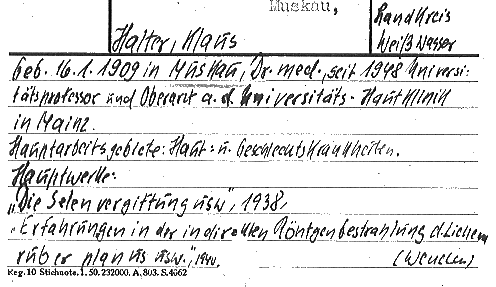 Muskau,
Landkreis
Weißwasser
Halter, Klaus
geb. 16.1.1909 in Muskau, Dr. med., seit 1948 Universi-
tätsprofessor und Oberarzt a. d. Universitäts-Hautklinik
in Mainz.
Hauptarbeitsgebiete: Haut- u. Geschlechtskrankheiten.
Hauptwerke:
„Die Selenvergiftung usw", 1938,
„Erfahrungen in der indirekten Röntgenbestrahlung d. Lichen
ruber planus usw.", 1940.
Reg. 10 Stichnote. 1. 50. 232000. A. 803. S. 4662